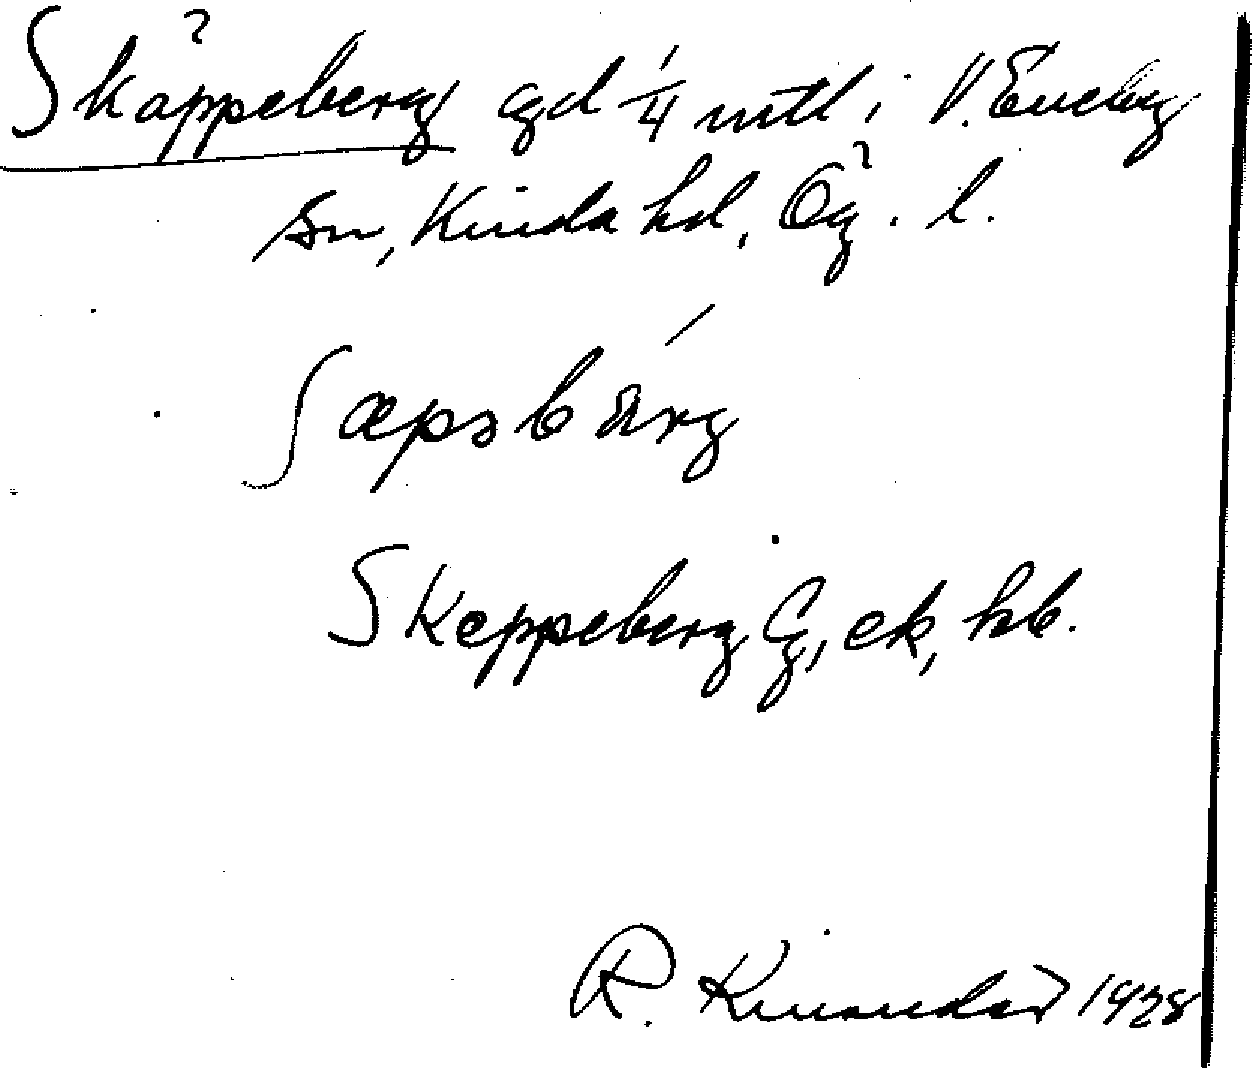 Skäppeberg gd 1/4 mtl i V. Eneby
sn, Kinda hd, Ög. l.
ʃæpəbärg
Skeppeberg G, ek, hb.
R. Kinander 1928